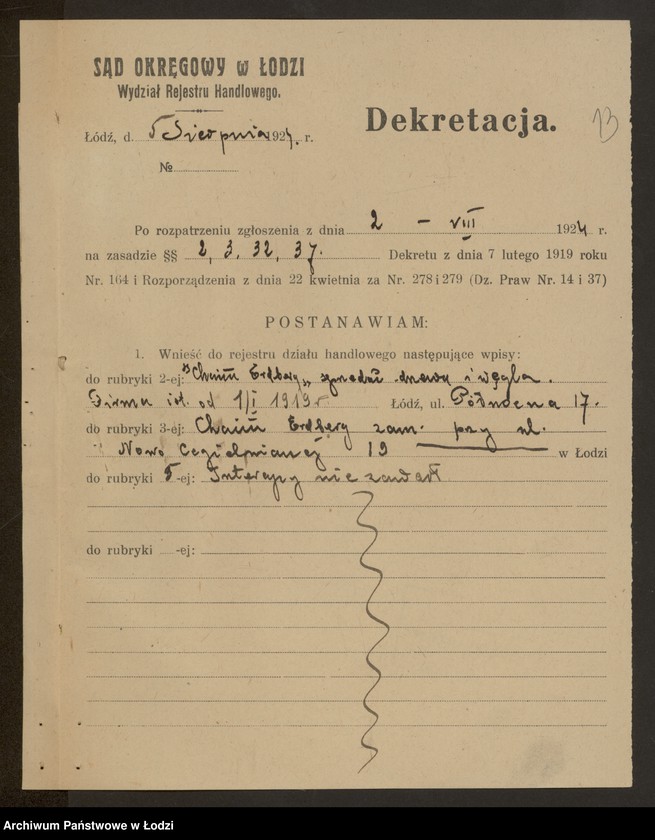 SĄD OKRĘGOWY w ŁODZI
Wydział Rejestru Handlowego.
Dekretacja.
13
Łódź, d. 5 Sierpnia 1924. r.
№
Po rozpatrzeniu zgłoszenia z dnia 2 – VIII 1924 r.
na zasadzie §§ 2, 3, 32, 37. Dekretu z dnia 7 lutego 1919 roku
Nr. 164 i Rozporządzenia z dnia 22 kwietnia za Nr. 278 i 279 (Dz. Praw Nr. 14 i 37)
POSTANAWIAM:
1. Wnieść do rejestru działu handlowego następujące wpisy:
do rubryki 2-ej: "Chaim Erdberg" sprzedaż drzewa i węgla.
Firma ist. od 1/I 1919 r Łódź, ul. Północna 17.
do rubryki 3-ej: Chaim Erdberg zam. przy ul.
Nowo Cegielnianej 19 w Łodzi
do rubryki 5-ej: Intercyzy nie zawarł
do rubryki -ej:
Archiwum Państwowe w Łodzi